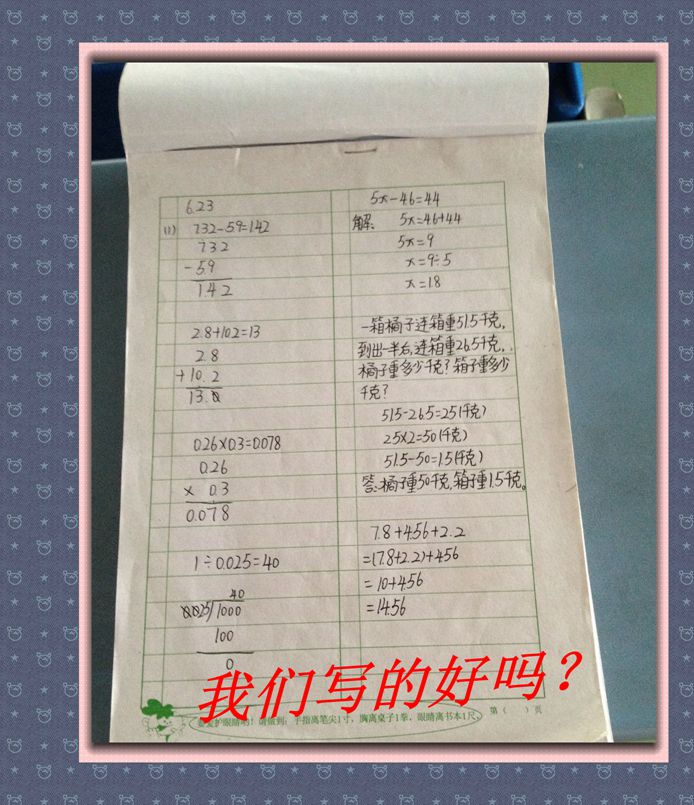 6.23
(1) 7.32-5.9=1.42
7.32
-5.9
1.42
2.8+10.2=13
2.8
+10.2
13.0
0.26×0.3=0.078
0.26
× 0.3
0.078
1÷0.025=40
40
0.025/1000
100
0
5x-46=44
解: 5x=46+44
5x=9
x=9÷5
x=18
一箱橘子连箱重51.5千克,
到出一半后,连箱重26.5千克,.
橘子重多少千克?箱子重多少
千克?
51.5-26.5=25(千克)
25×2=50(千克)
51.5-50=1.5(千克)
答:橘子重50千克,箱子重1.5千克。
7.8+4.56+2.2
=(7.8+2.2)+4.56
=10+4.56
=14.56
我们写的好吗?
护眼睛哟!请做到:手指离笔尖1寸,胸离桌子1拳,眼睛离书本1尺。
第( )页